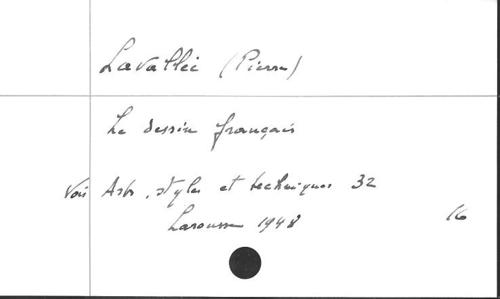 Lavallée (Pierre)
Le dessin français
Voir Arts, styles et techniques 32
Larousse 1948 16